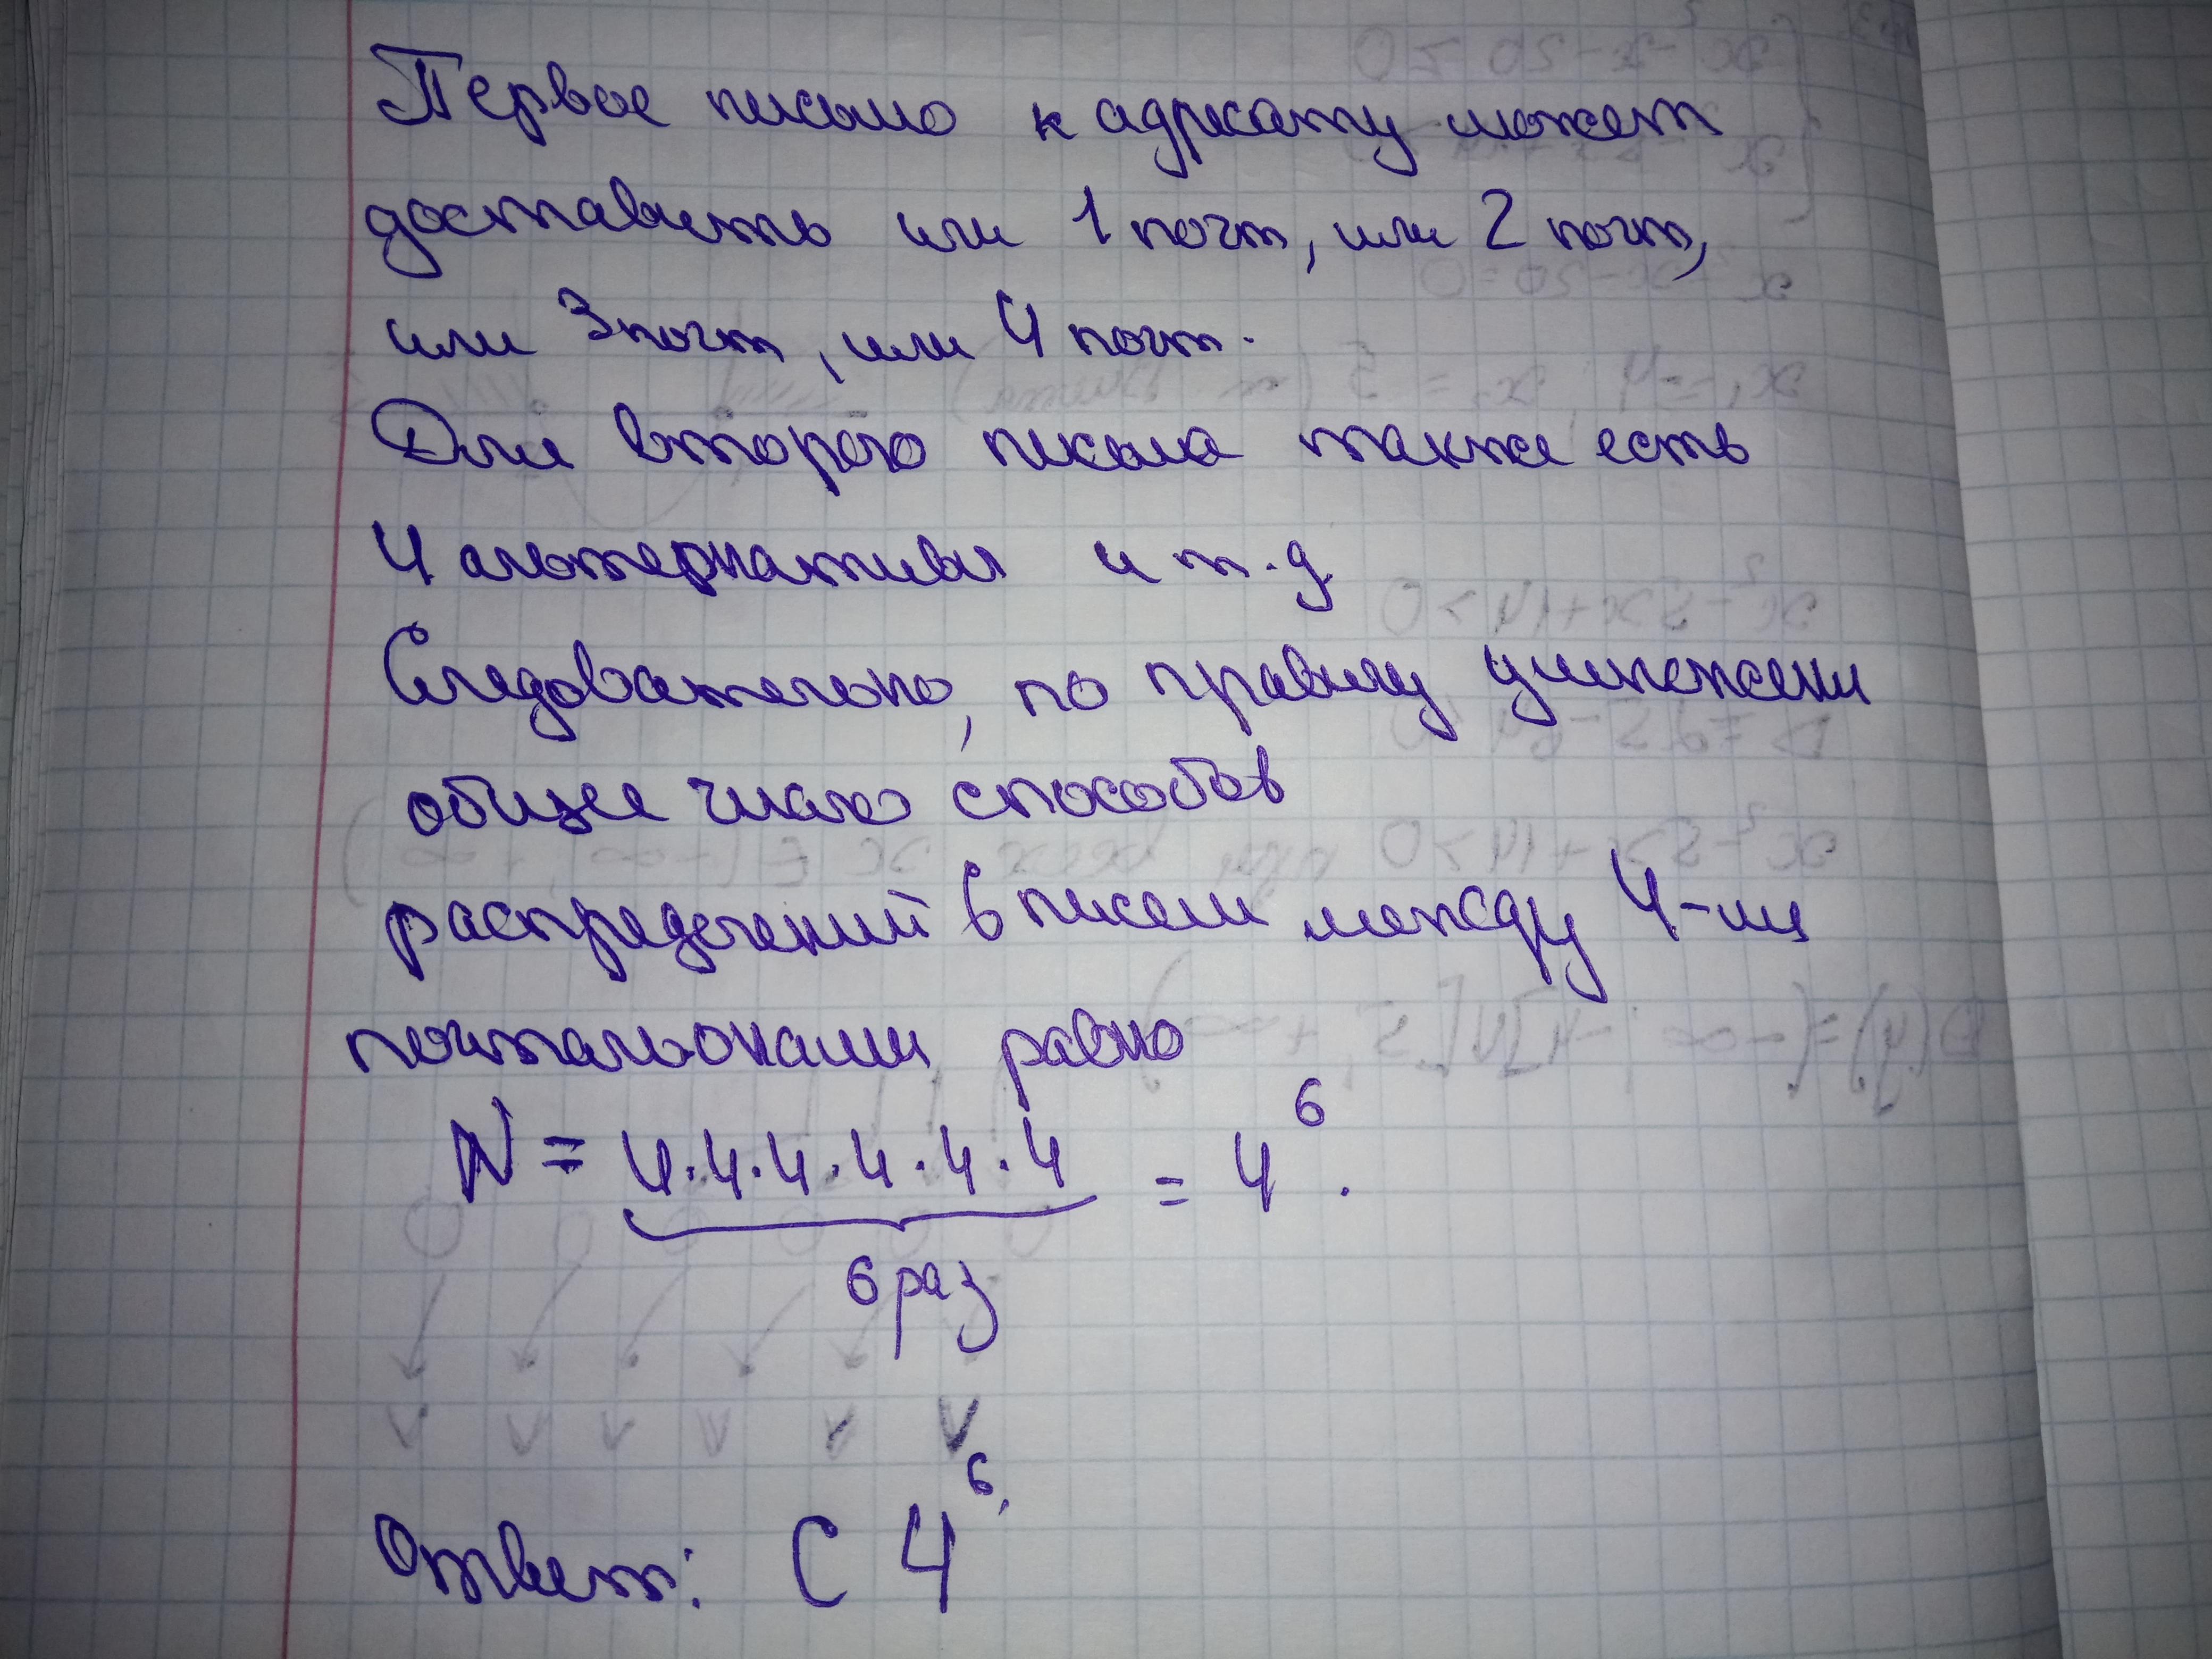 Первое письмо к адресату может
доставить или 1 почт, или 2 почт,
или 3 почт, или 4 почт.
Для второго письма также есть
4 альтернативы и т.д.
Следовательно, по правилу умножени
общее число способов
распределений 6 писем между 4-мя
почтальонами равно
N = 4·4·4·4·4·4 = 4⁶.
6 раз
Ответ: C 4⁶.